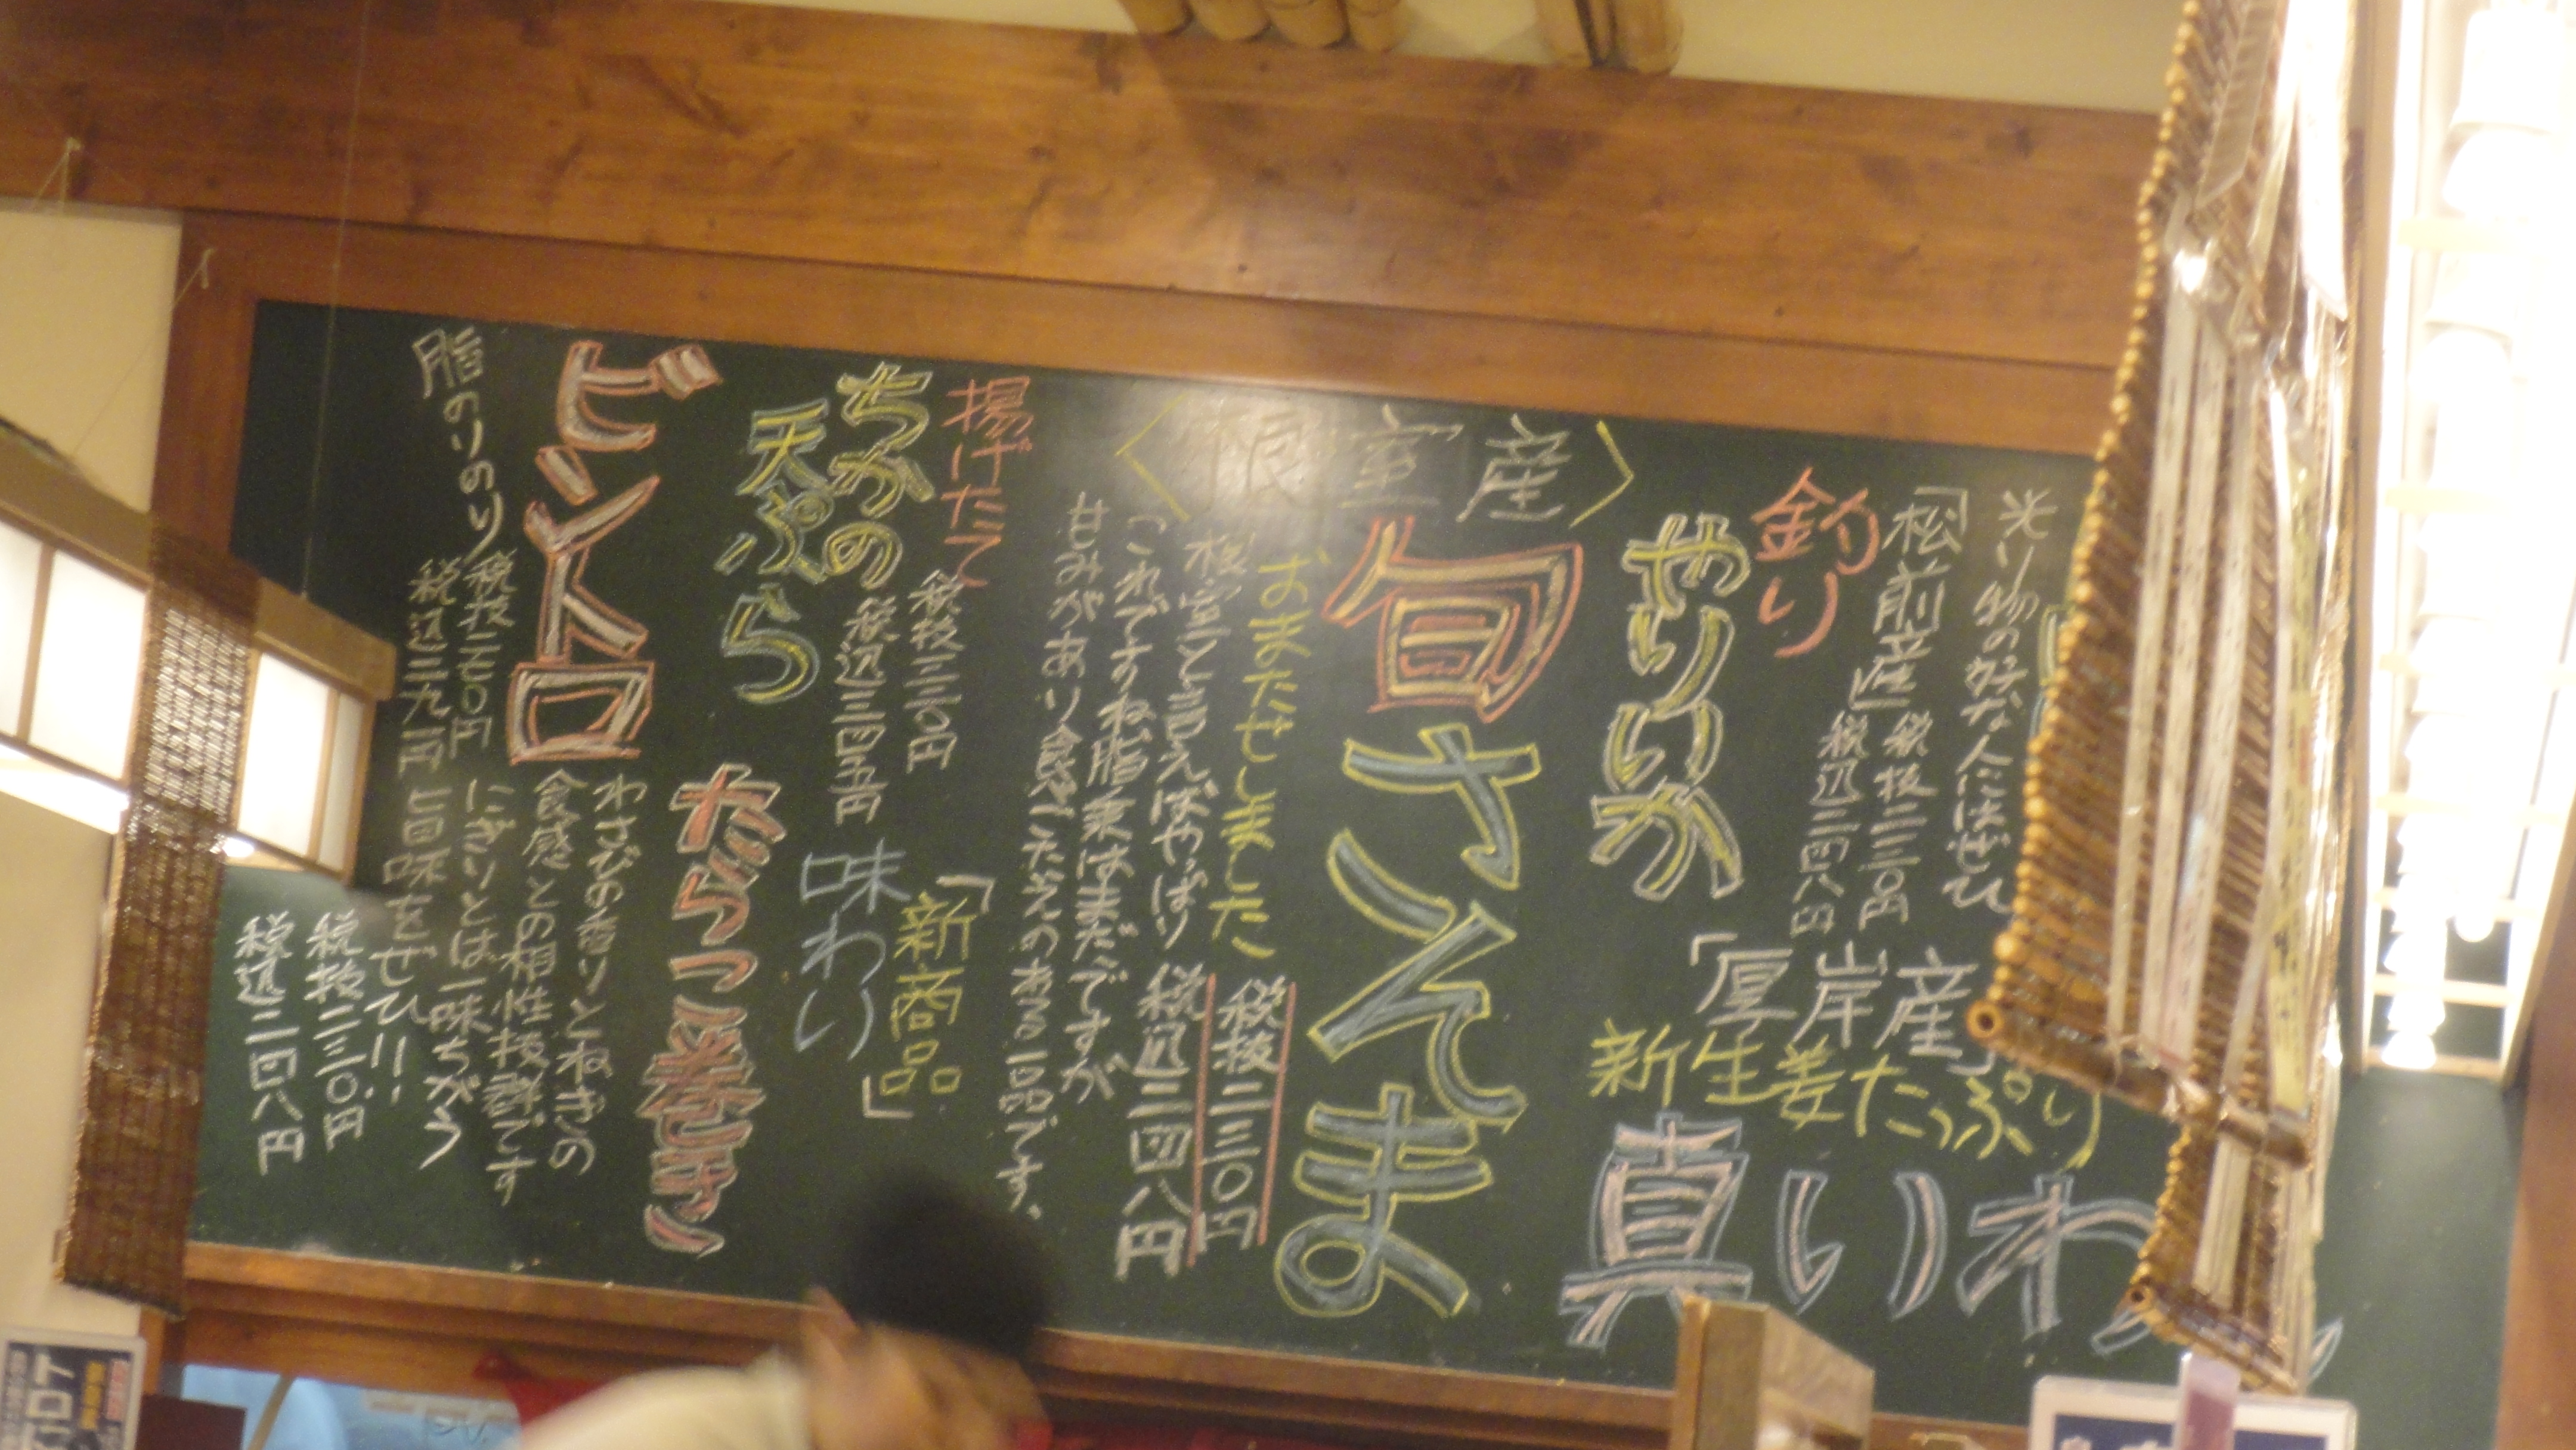 光り物の好きな人にはぜひ
「松前産」
税抜二三〇円
税込二四八円
釣り
やりいか
「厚岸産」
新生姜たっぷり
真いわ
〈根室産〉
旬さんま
おまたせしました
根室と言えばやっぱり
これですよね脂乗はまだですが
甘みがあり食べごたえのある一品です。
税抜二三〇円
税込二四八円
揚げたて
ちかの
天ぷら
税抜三二〇円
税込三四五円
「新商品」
味わい
たらつこ巻き
わさびの香りとねぎの
食感との相性抜群です
にぎりとは一味ちがう
ビントロ
脂のりのり
税抜二七〇円
税込二九一円
巨味をぜひ!!
税抜二三〇円
税込二四八円